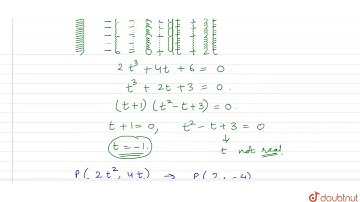 2t³ + 4t + 6 = 0
t³ + 2t + 3 = 0
(t+1) (t²-t+3) = 0
t+1 = 0, t²-t+3 = 0
t = -1. t not real
P(2t², 4t) → P(2, -4)
doubtnut